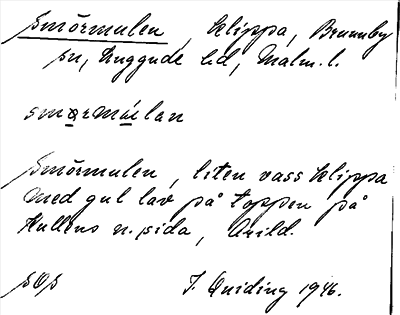 Smörmulen, klippa, Brunnby
sn, Luggude hd, Malm. l.
smørmúlan
Smörmulen, liten vass klippa
med gul lav på toppen på
Kullens n. sida, Arild.
SOS J. Quiding 1946.